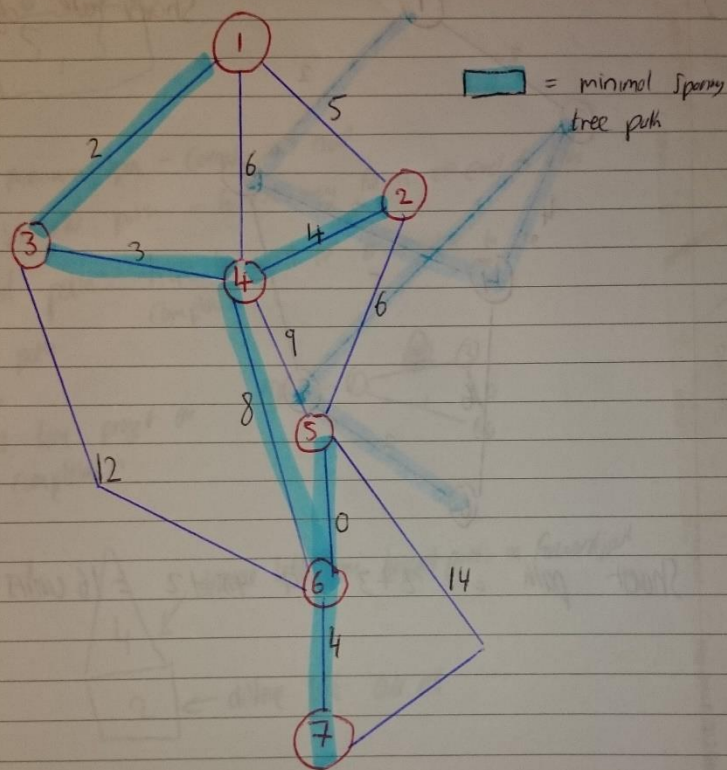 1
= minimal Spaning
tree path
2
5
6
2
3
3
4
4
6
9
8
5
12
0
6
14
4
7